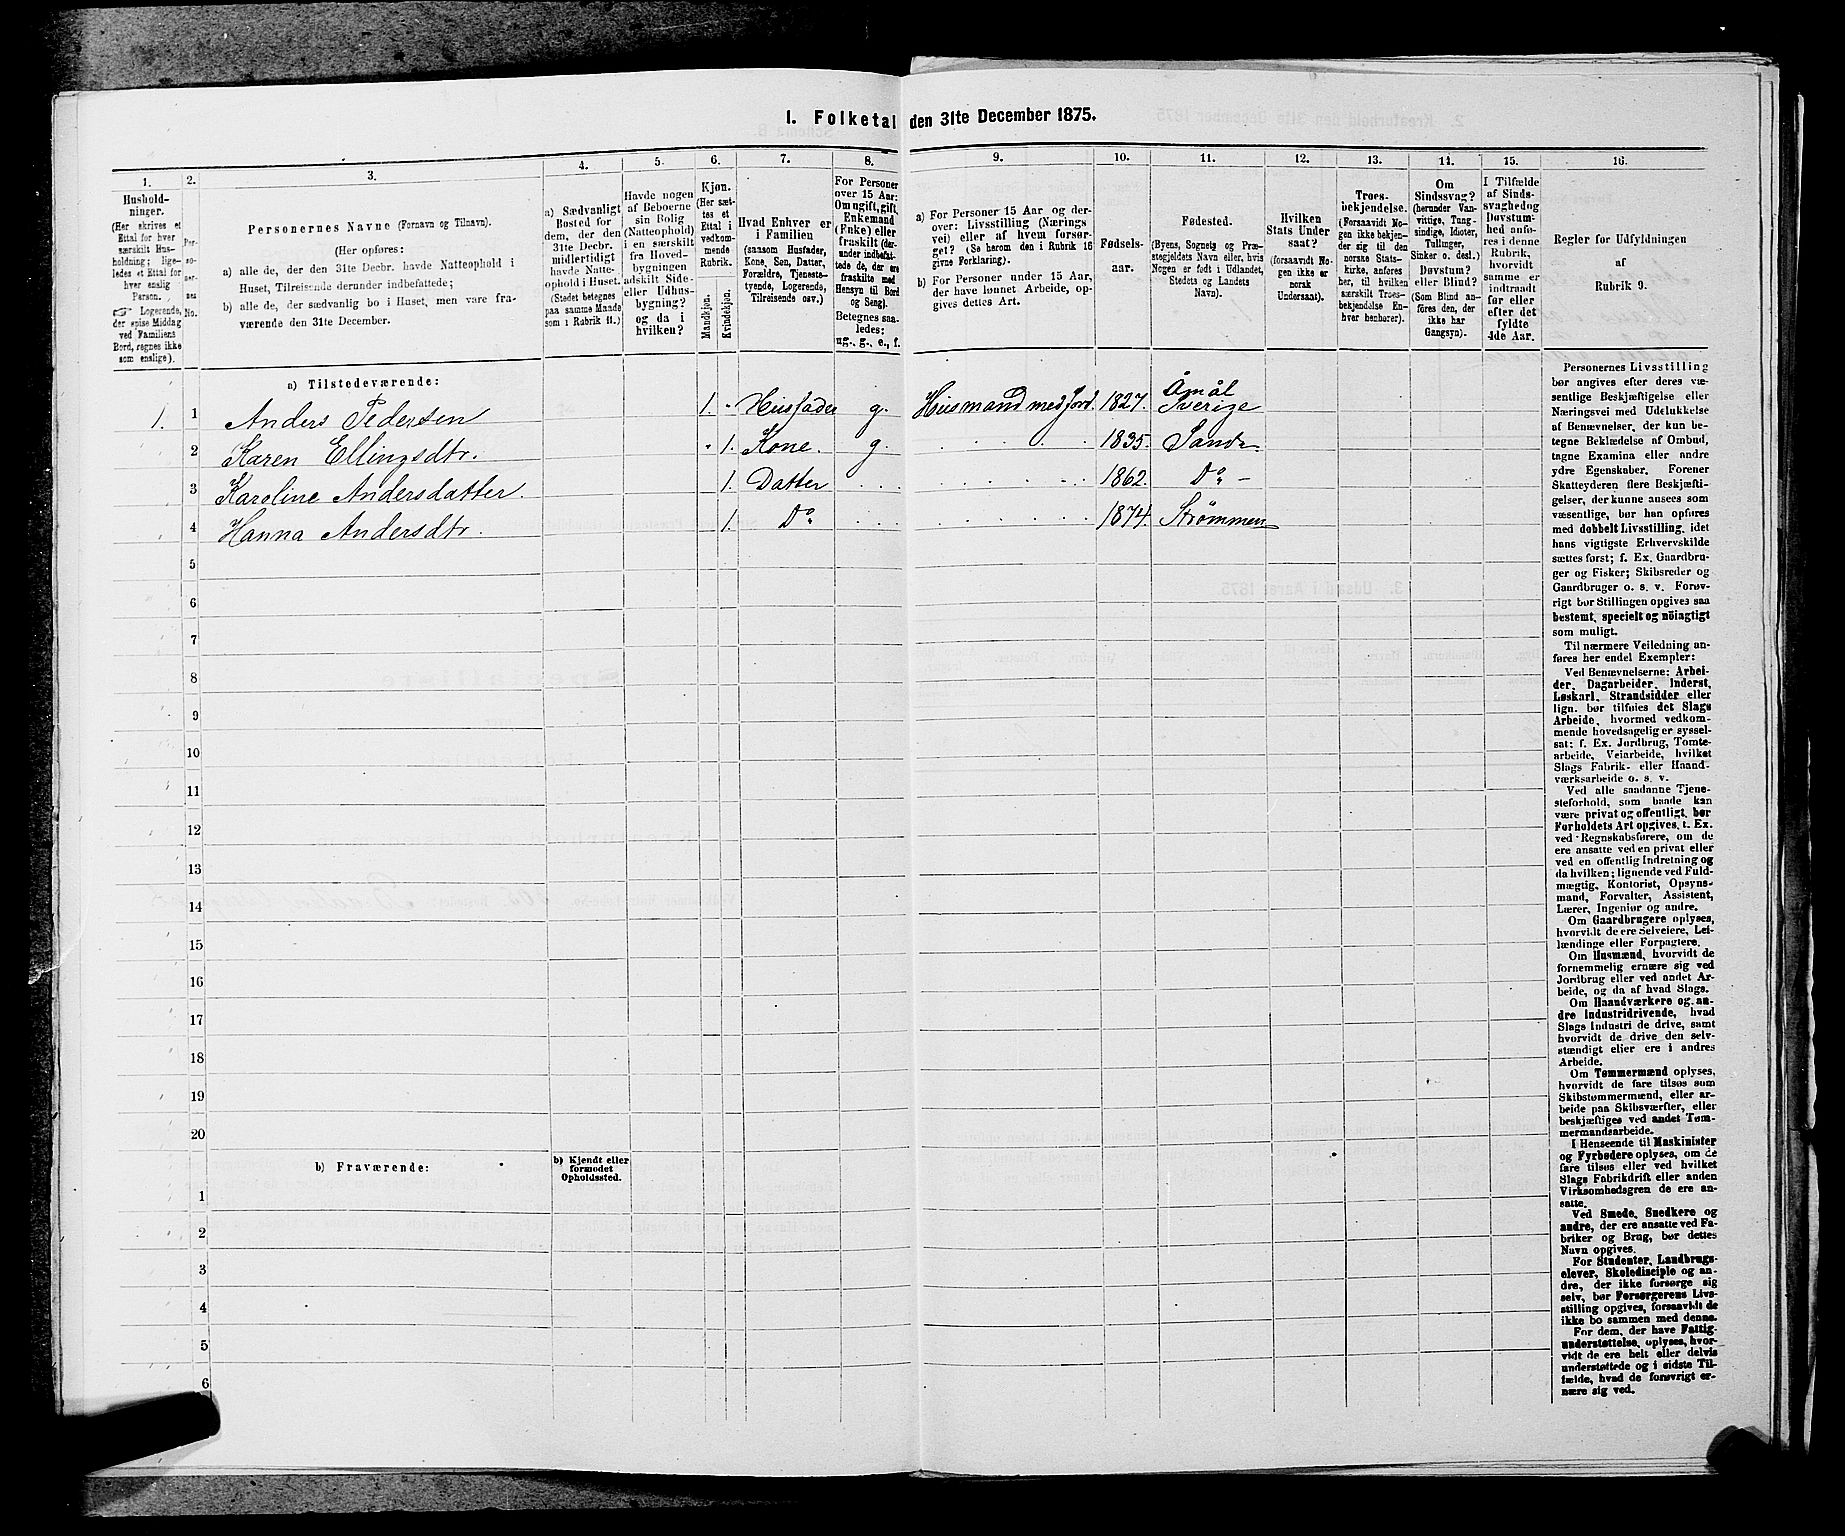 1. Folketal den 31te December 1875.
1.
2.
3.
4.
5.
6.
7.
8.
9.
10.
11.
12.
13.
14.
15.
16.
Hushold-
ninger.
(Her skrives et
Ettal for hver
særskilt Hus-
holdning; lige-
ledes et Ettal for
hver enslig
Person.
☞ Logerende,
der spise Middag
ved Familiens
Bord, regnes ikke
som enslige).
Per-
so-
ner-
nes
No.
Personernes Navne (Fornavn og Tilnavn).
(Her opføres:
a) alle de, der den 31te Decbr. havde Natteophold i
Huset, Tilreisende derunder indbefattede;
b) alle de, der sædvanlig bo i Huset, men vare fra-
værende den 31te December.)
a) Sædvanligt
Bosted for
dem, der den
31te Decbr.
midlertidigt
havde Natte-
ophold i Huset.
(Stedet betegnes
paa samme Maade
som i Rubrik 11.)
Havde nogen
af Beboerne
sin Bolig
(Natteophold)
i en særskilt
fra Hoved-
bygningen
adskilt Side-
eller Udhus-
bygning?
og da i
hvilken?
Kjøn.
(Her sæt-
tes et
Ettal i
vedkom-
mende
Rubrik.
Mandkjøn.
Kvindekjøn.
Hvad Enhver er
i Familien
(saasom Husfader,
Kone, Søn, Datter,
Forældre, Tjeneste-
tyende, Logerende,
Tilreisende osv.)
For Personer
over 15 Aar:
Om ugift, gift,
Enkemand
(Enke) eller
fraskilt (der-
under indbefat-
tede de, der ere
fraskilte med
Hensyn til Bord
og Seng).
Betegnes saa-
ledes:
ug., g., e., f.
a) For Personer 15 Aar og der-
over: Livsstilling (Nærings
vei) eller af hvem forsør-
get? (Se herom den i Rubrik 16
givne Forklaring).
b) For Personer under 15 Aar,
der have lønnet Arbeide, op-
gives dettes Art.
Fødsels-
aar.
Fødested.
(Byens, Sognets og Præ-
stegjeldets Navn eller, hvis
Nogen er født i Udlandet,
Stedets og Landets
Navn).
Hvilken
Stats Under
saat?
(forsaavidt No-
gen ikke er
norsk
Undersaat).
Troes-
bekjendelse.
(Forsaavidt No-
gen ikke bekjen-
der sig til den
norske Stats-
kirke, anføres
her, til hvilken
særskilt Troes-
bekjendelse En-
hver henhører).
Om
Sindssvag?
(herunder Van-
vittige, Tung-
sindige, Idioter,
Tullinger,
Sinker o. desl.)
Døvstum?
eller Blind?
(Som Blind an-
føres den, der
ikke har
Gangsyn).
I Tilfælde
af Sinds-
svaghed og
Døvstum-
hed anfø-
res i denne
Rubrik,
hvorvidt
samme er
indtraadt
før eller
efter det
fyldte
4de Aar.
Regler for Udfyldningen
af
Rubrik 9.
a) Tilstedeværende:
1. 1 Anders Pedersen 1. " Husfader g. Husmand med Jord. 1827. Åmål Sverige
2 Karen Ellingsdtr. " 1. Kone. g. 1835. Sande
3 Karoline Andersdatter. 1. Datter 1862. Do. —
4 Hanna Andersdtr. 1. Do. 1874. Strømmen
5
6
7
8
9
10
11
12
13
14
15
16
17
18
19
20
b) Fraværende:
b) Kjendt eller
formodet
Opholdssted.
1
2
3
4
5
6
Personernes Livsstilling
bør angives efter deres væ-
sentlige Beskjæftigelse eller
Næringsvei med Udelukkelse
af Benævnelser, der kun be-
tegne Beklædelse af Ombud,
tagne Examina eller andre
ydre Egenskaber. Forener
Skatteyderen flere Beskjæfti-
gelser, der kunne ansees som
væsentlige, bør han opføres
med dobbelt Livsstilling, idet
hans vigtigste Erhvervskilde
sættes først; f. Ex. Gaardbru-
ger og Fisker; Skibsreder og
Gaardbruger o. s. v. Forøv-
rigt bør Stillingen opgives saa
bestemt, specielt og nöiagtigt
som muligt.
Til nærmere Veiledning an-
føres her endel Exempler:
Ved Benævnelserne: Arbei-
der, Dagarbeider, Inderst,
Løskarl, Strandsidder eller
lign. bør tilføies det Slags
Arbeide, hvormed vedkom-
mende hovedsagelig er syssel-
sat; f. Ex. Jordbrug, Tomte-
arbeide, Veiarbeide, hvilket
Slags Fabrik- eller Haand-
værksarbeide o. s. v.
Ved alle saadanne Tjene-
steforhold, som baade kan
være privat og offentligt, bør
Forholdets Art opgives, t. Ex.
ved Regnskabsførere, om de
ere ansatte ved en privat eller
ved en offentlig Indretning og
da hvilken; lignende ved Fuld-
mægtig, Kontorist, Opsyns-
mand, Forvalter, Assistent,
Lærer, Ingeniør og andre.
Om Gaardbrugere oplyses,
hvorvidt de ere Selveiere, Lei-
lændinge eller Forpagtere.
Om Husmænd, hvorvidt de
fornemmelig ernære sig ved
Jordbrug eller ved andet Ar-
beide, og da af hvad Slags.
Om Haandværkere og an-
dre Industridrivende, hvad
Slags Industri de drive, samt
hvorvidt de drive den selv-
stændigt eller ere i andres
Arbeide.
Om Tømmermænd oplyses,
hvorvidt de fare tilsøs som
Skibstømmermænd, eller ar-
beide paa Skibsværfter, eller
beskjæftiges ved andet Tøm-
mermandsarbeide.
I Henseende til Maskinister
og Fyrbødere oplyses, om de
fare tilsøs eller ved hvilket
Slags Fabrikdrift eller anden
Virksomhedsgren de ere an-
satte.
Ved Smede, Snedkere og
andre, der ere ansatte ved Fa-
briker og Brug, bør dettes
Navn opgives.
For Studenter, Landbrugs-
elever, Skoledisciple og an-
dre, der ikke forsørge sig
selv, bør Forsørgerens Livs-
stilling opgives, forsaavidt de
ikke bo sammen med denne.
For dem, der have Fattig-
understøttelse, oplyses, hvor-
vidt de ere helt eller delvis
understøttede og i sidste Til-
fælde, hvad de forøvrigt er-
nære sig ved.